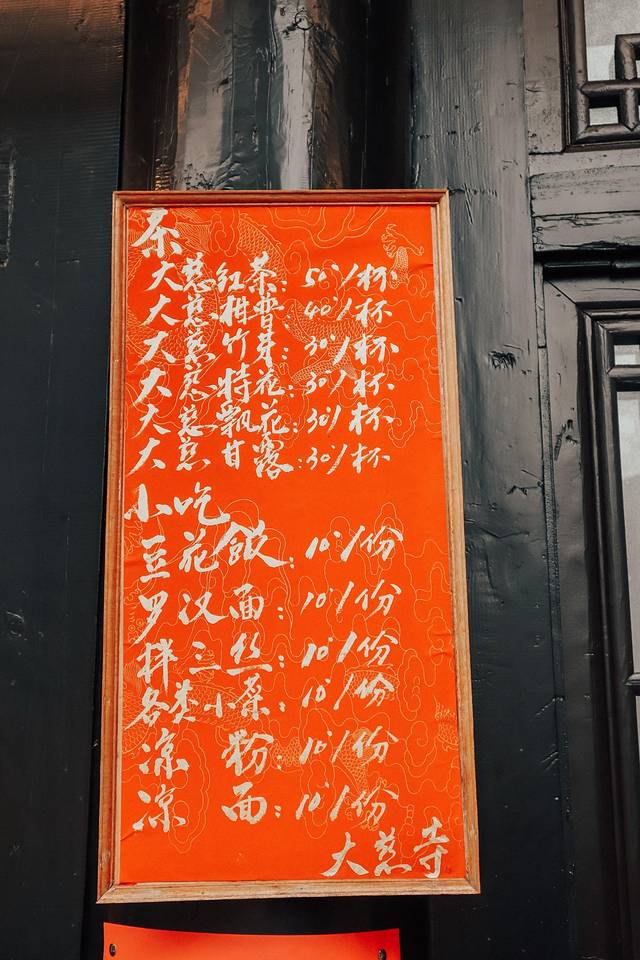 茶
大慈红茶:50/杯
大慈柑普:40/杯
大慈竹芽:30/杯
大慈特花:30/杯
大慈飘花:30/杯
大慈甘露:30/杯
小吃
豆花饭:10/份
罗汉面:10/份
拌三丝:10/份
各类小菜:10/份
凉粉:10/份
凉面:10/份
大慈寺